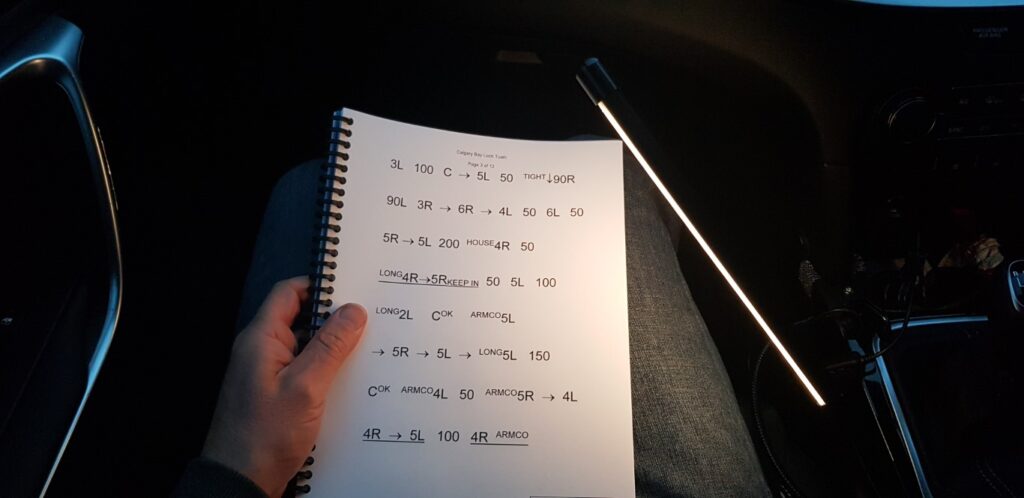 Calgary Bay Loch Tuath
Page 3 of 13
3L 100 C → 5L 50 TIGHT↓90R
90L 3R → 6R → 4L 50 6L 50
5R → 5L 200 HOUSE4R 50
LONG4R→5RKEEP IN 50 5L 100
LONG2L COK ARMCO5L
→ 5R → 5L → LONG5L 150
COK ARMCO4L 50 ARMCO5R → 4L
4R → 5L 100 4R ARMCO
PASSENGER
AIR BAG